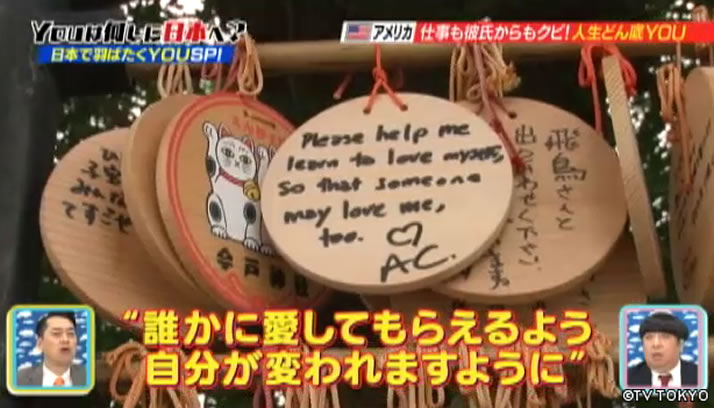 YOUは何しに日本へ?
日本で羽ばたくYOUSP!
アメリカ 仕事も彼氏からもクビ!人生どん底YOU
Please help me
learn to love myself,
so that someone
may love me,
too. ♡
A.C.
飛鳥さんと
出会わせて下さい。
今戸神社
“誰かに愛してもらえるよう
自分が変われますように”
©TV TOKYO